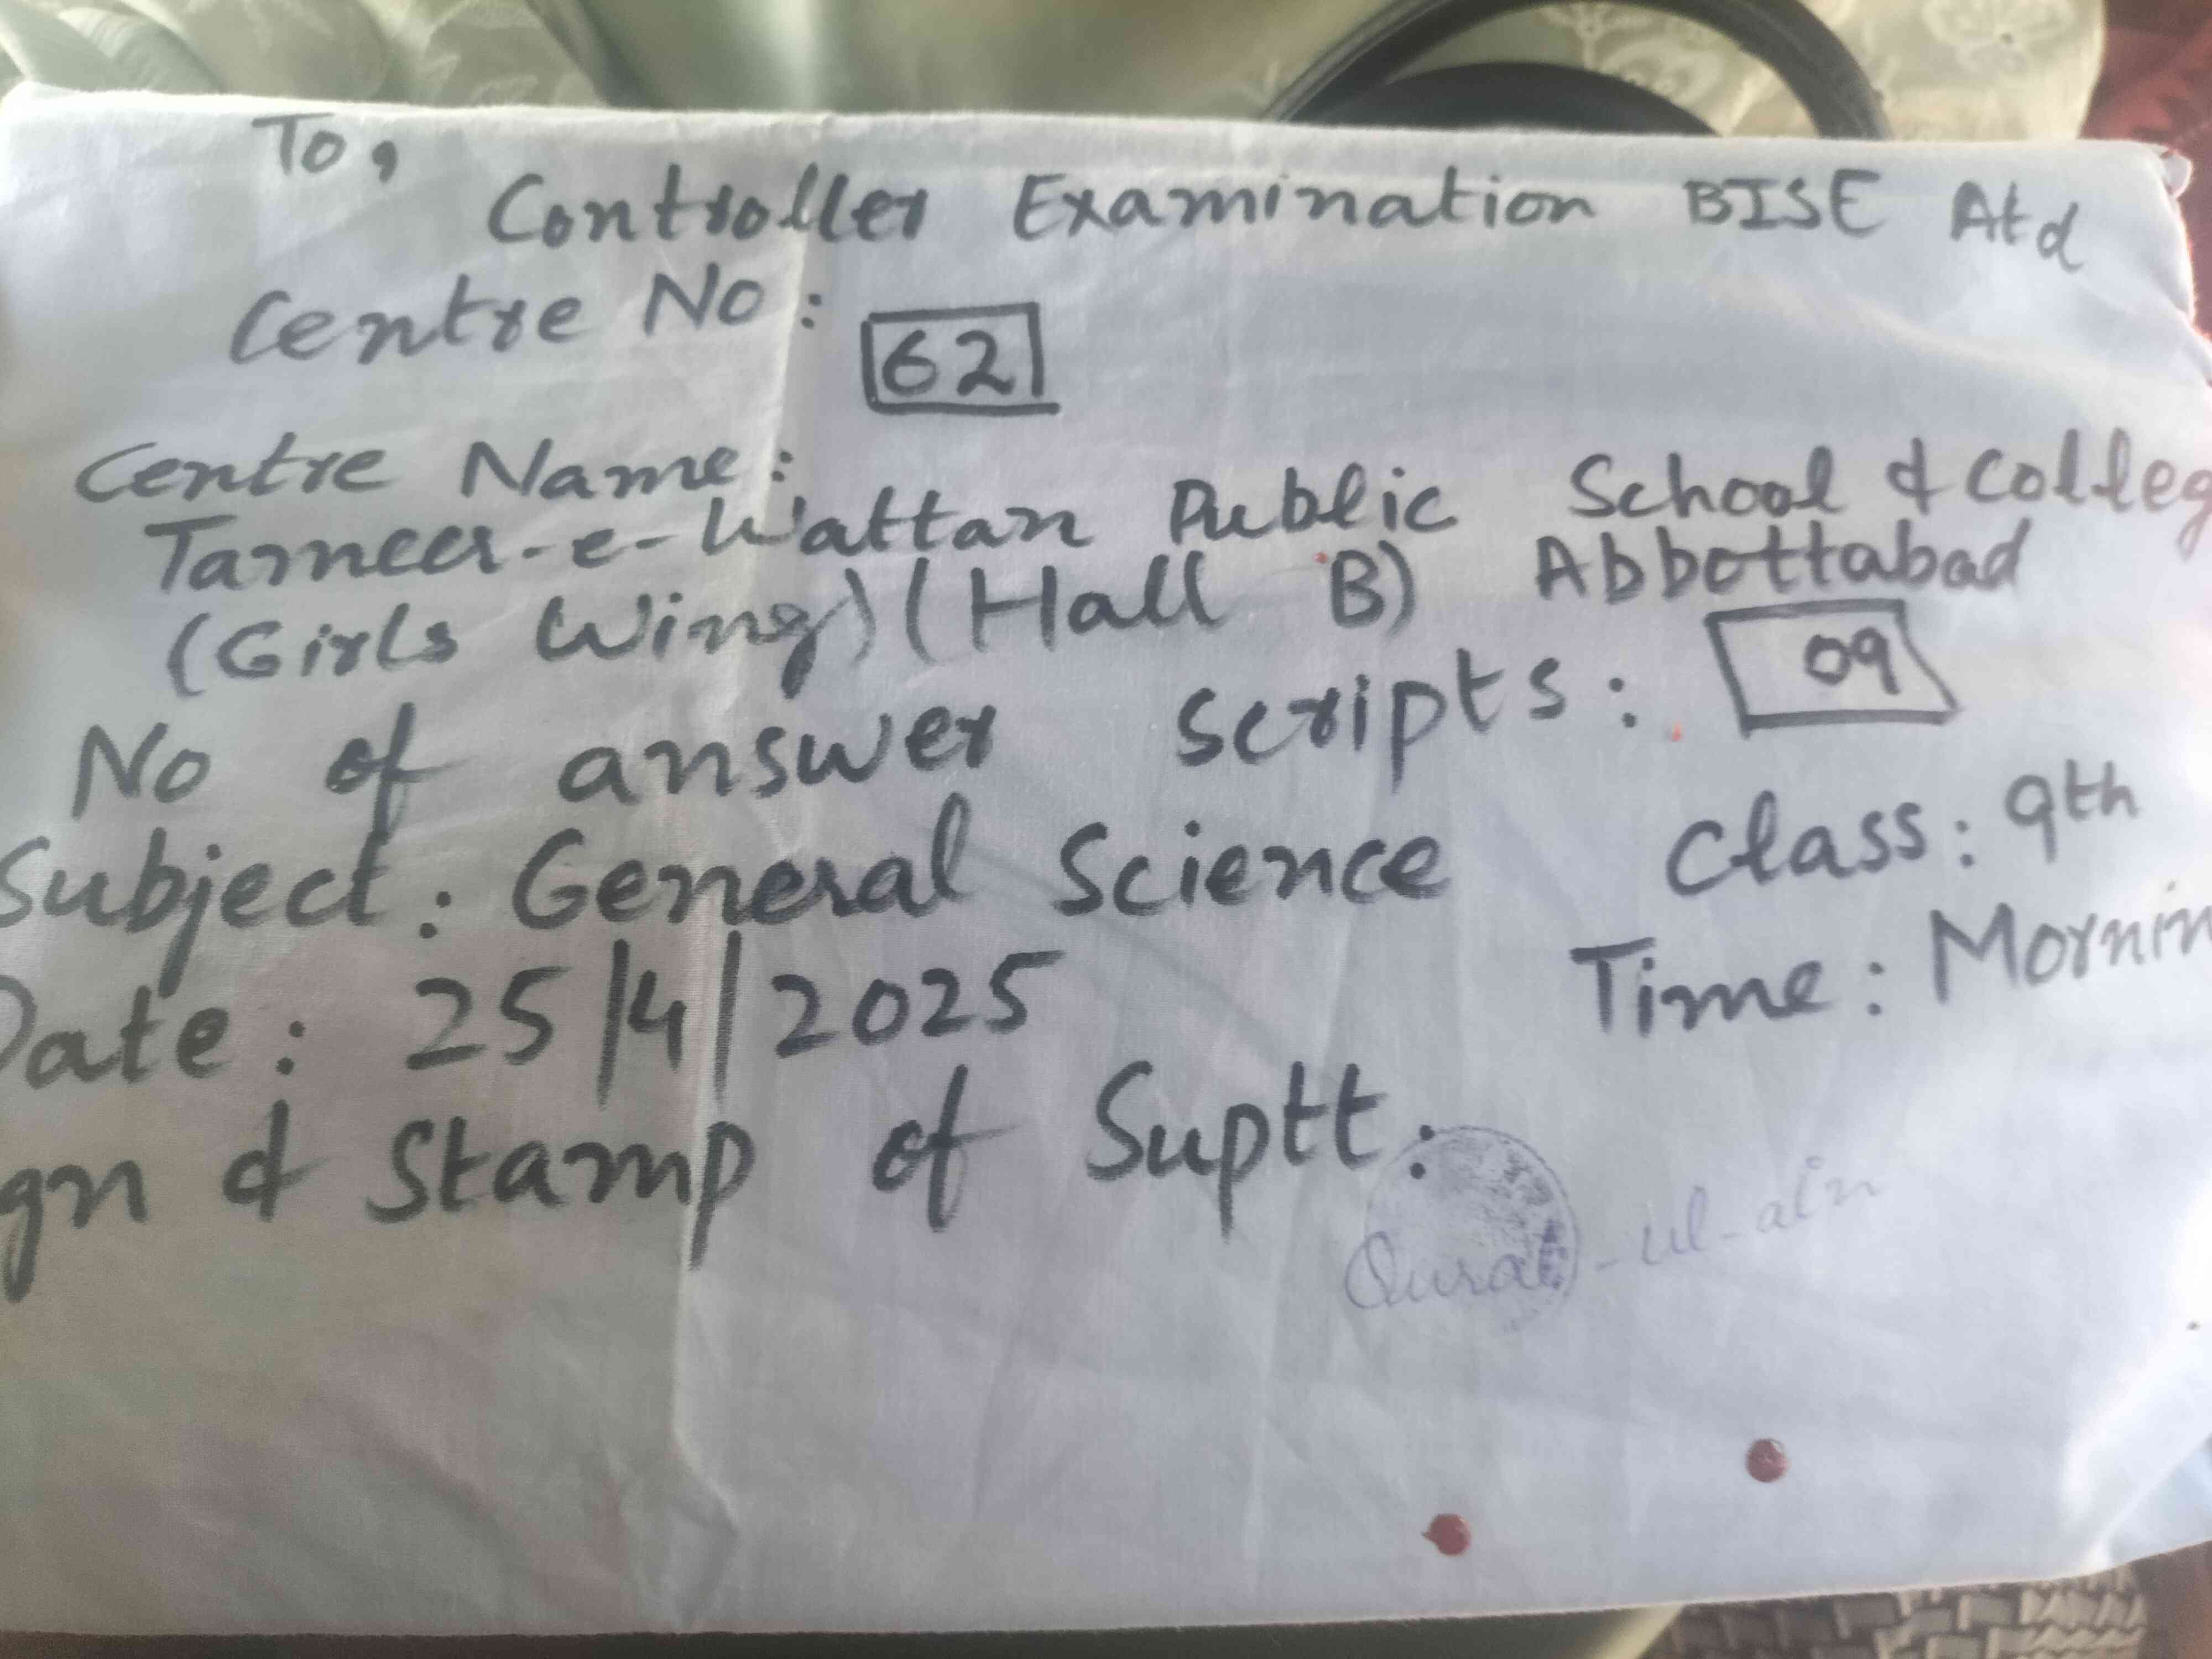 To,
Controller Examination BISE Atd
Centre No: 62
Centre Name:
Tameer-e-Wattan Public School & Colleg
(Girls Wing) (Hall B) Abbottabad
No of answer scripts: 09
Subject: General Science Class: 9th
Date: 25/4/2025 Time: Mornin
gn & Stamp of Suptt:
Qurat-ul-ain